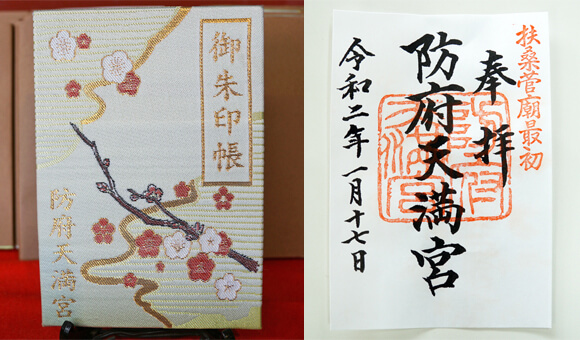 御朱印帳
防府天満宮
扶桑菅廟最初
奉拝
防府天満宮
令和二年一月十七日